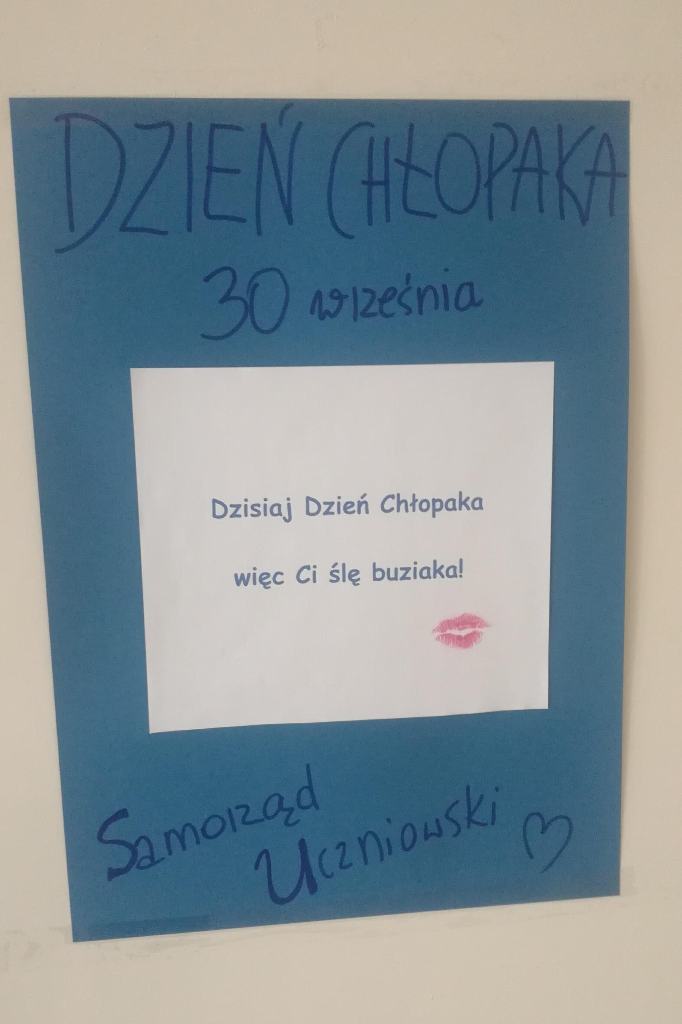 DZIEŃ CHŁOPAKA
30 września
Dzisiaj Dzień Chłopaka
więc Ci ślę buziaka!
Samorząd
Uczniowski